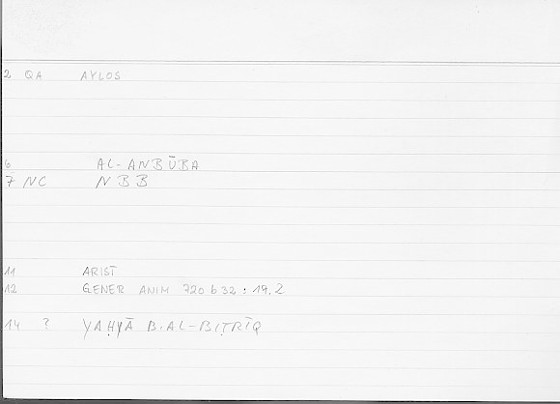 2 QA AYLOS
6 AL-ANBŪBA
7 NC NBB
11 ARIST
12 GENER ANIM 720 b 32 : 19.2
14 ? YAḤYĀ B. AL-BIṬRĪQ